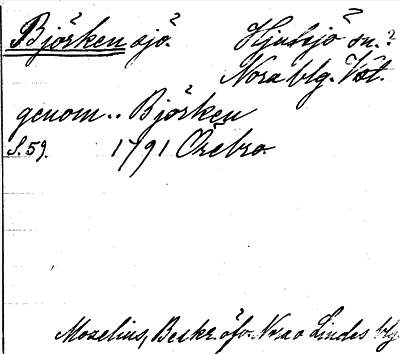 Björken sjö.
Hjulsjö sn.?
Nora blg. Vstl.
genom.. Björken
S. 59. 1791 Örebro.
Moselius, Beskr. öfv. Nora o Lindes blg